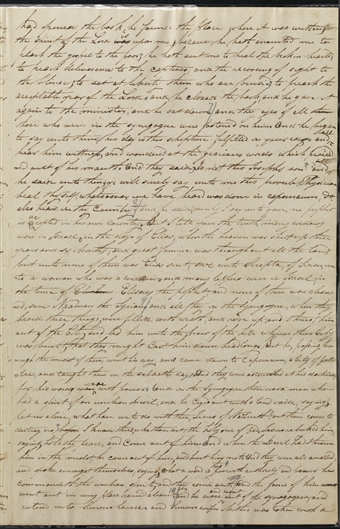 had opened the book he found the place where it was written
the spirit of the Lord was upon me because he hath anointed me to
preach the gospel to the poor he hath sent me to heal the broken hearted
to preach deliverance to the captives and the recovering of sight to
the blind to set at liberty them who are bruised to preach the
acceptable year of the Lord and he closed the book and he gave it
again to the minister and he sat down and the eyes of all
those who were in the synagogue were fastened on him And he began
to say unto them this day is this scripture fulfilled in your ears
bear him witness and wondered at the gracious words which
out of his mouth And they said is not this Joseph's son and
he said unto them ye will surely say unto me this proverb Physician
heal thyself whatsoever we have heard was done in capernaum do
also here in thy Country and he said verily I say unto you no prophet
is accepted in his own country I tell you the truth many widows
were in Israel in the days of Elias when the heaven was shut up three
years and six months and great famine was throughout all the land
but unto none of them was Elias sent save unto
to a woman that was a widow and many lepers were in Israel in
the time of Eliseus the prophet and none of them was cleansed
save Naaman the Syrian and all they in the synagogue when they
heard these things were filled with wrath and rose up and thrust him
out of the city and led him unto the brow of the hill whereon their City
was built that they might Cast him down headlong But he passing through
the midst of them went his way and came down to Capernaum a City of galilee
and taught them on the sabbath days And they were astonished at his doctrine
for his words were with power And in the Synagogue there was a man who
had a spirit of an unclean devil and he Cried out with a loud voice saying
let us alone what have we to do with thee Jesus of Nazareth art thou come to
destroy us I know thee who thou art the holy one of God Jesus rebuked him
saying hold thy peace and Come out of him And when the Devil had thrown
him in the midst he came out of him and hurt him not And they were all amazed
and spake amongst themselves saying what a word is this with authority and power he
commandeth the unclean spirits and they come out And the fame of him
went out in every place round about And he arose out of the synagogue and
entered in to Simons house and Simons wifes mother was taken with a